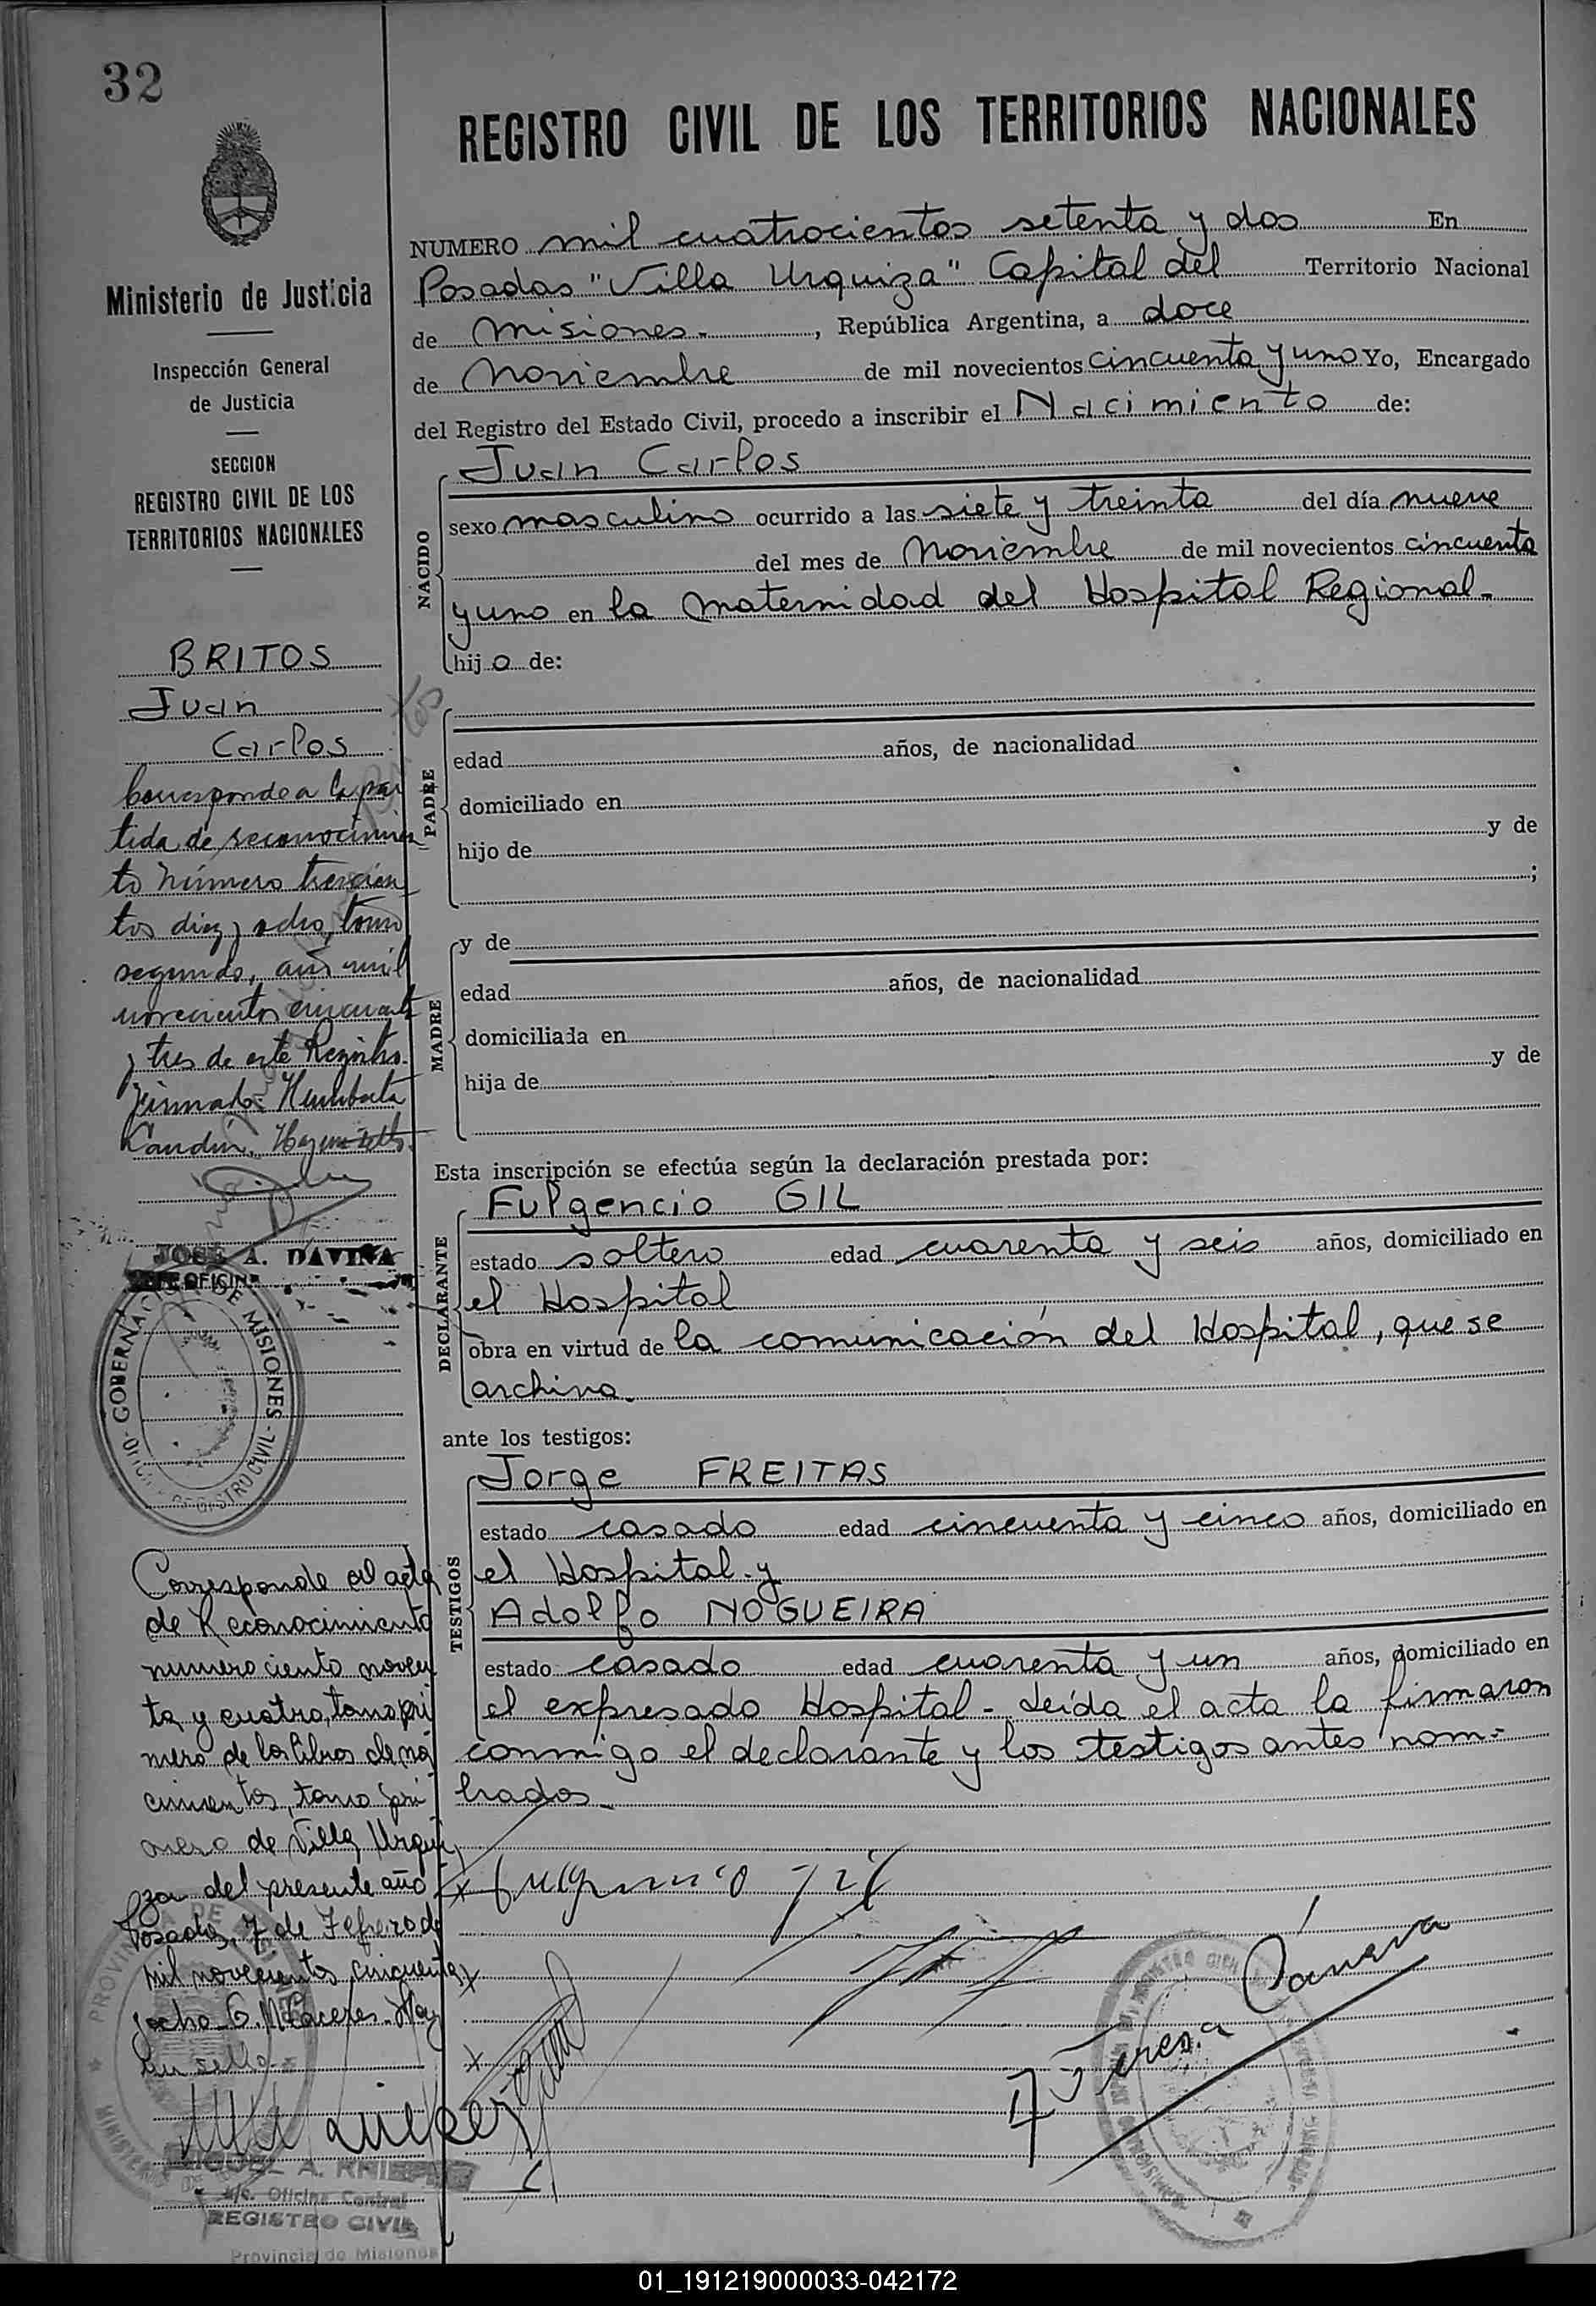 32
REGISTRO CIVIL DE LOS TERRITORIOS NACIONALES
Ministerio de Justicia
Inspección General
de Justicia
SECCION
REGISTRO CIVIL DE LOS
TERRITORIOS NACIONALES
NUMERO mil cuatrocientos setenta y dos En
Posadas "Villa Urquiza" Capital del Territorio Nacional
de Misiones.- , República Argentina, a doce
de Noviembre de mil novecientos cincuenta y uno Yo, Encargado
del Registro del Estado Civil, procedo a inscribir el Nacimiento de:
NACIDO
Juan Carlos
sexo masculino ocurrido a las siete y treinta del día nueve
del mes de Noviembre de mil novecientos cincuenta
y uno en la maternidad del Hospital Regional-
hijo de:
PADRE
edad años, de nacionalidad
domiciliado en
hijo de y de
;
MADRE
y de
edad años, de nacionalidad
domiciliada en
hija de y de
Esta inscripción se efectúa según la declaración prestada por:
DECLARANTE
Fulgencio GIL
estado soltero edad cuarenta y seis años, domiciliado en
el Hospital
obra en virtud de la comunicación del Hospital, que se
archiva
ante los testigos:
TESTIGOS
Jorge FREITAS
estado casado edad cincuenta y cinco años, domiciliado en
el Hospital y
Adolfo NOGUEIRA
estado casado edad cuarenta y un años, domiciliado en
el expresado Hospital - Leída el acta la firmaron
conmigo el declarante y los testigos antes nom-
brados
Fulgencio Gil
BRITOS
Juan
Carlos
Corresponde a la par
tida de reconocimien
to número trescien
tos diez y ocho, tomo
segundo, año mil
novecientos cincuenta
y tres de este Registro.
Firmado: Humberto
Hay un sello.
JOSE A. DAVIÑA
JEFE OFICINA
GOBERNACION DE MISIONES
OFICINA REGISTRO CIVIL
Corresponde al acta
de Reconocimiento
numero ciento noven
ta y cuatro, tomo pri
mero de los libros de na
cimientos, tomo pri
mero de Villa Urqui
za del presente año
Posadas, 7 de Febrero de
mil novecientos cincuenta
y ocho G. M. Caceres. Hay
un sello.-
PROVINCIA DE MISIONES
MIGUEL A.
Oficina Central
REGISTRO CIVIL
Provincia de Misiones
01_191219000033-042172